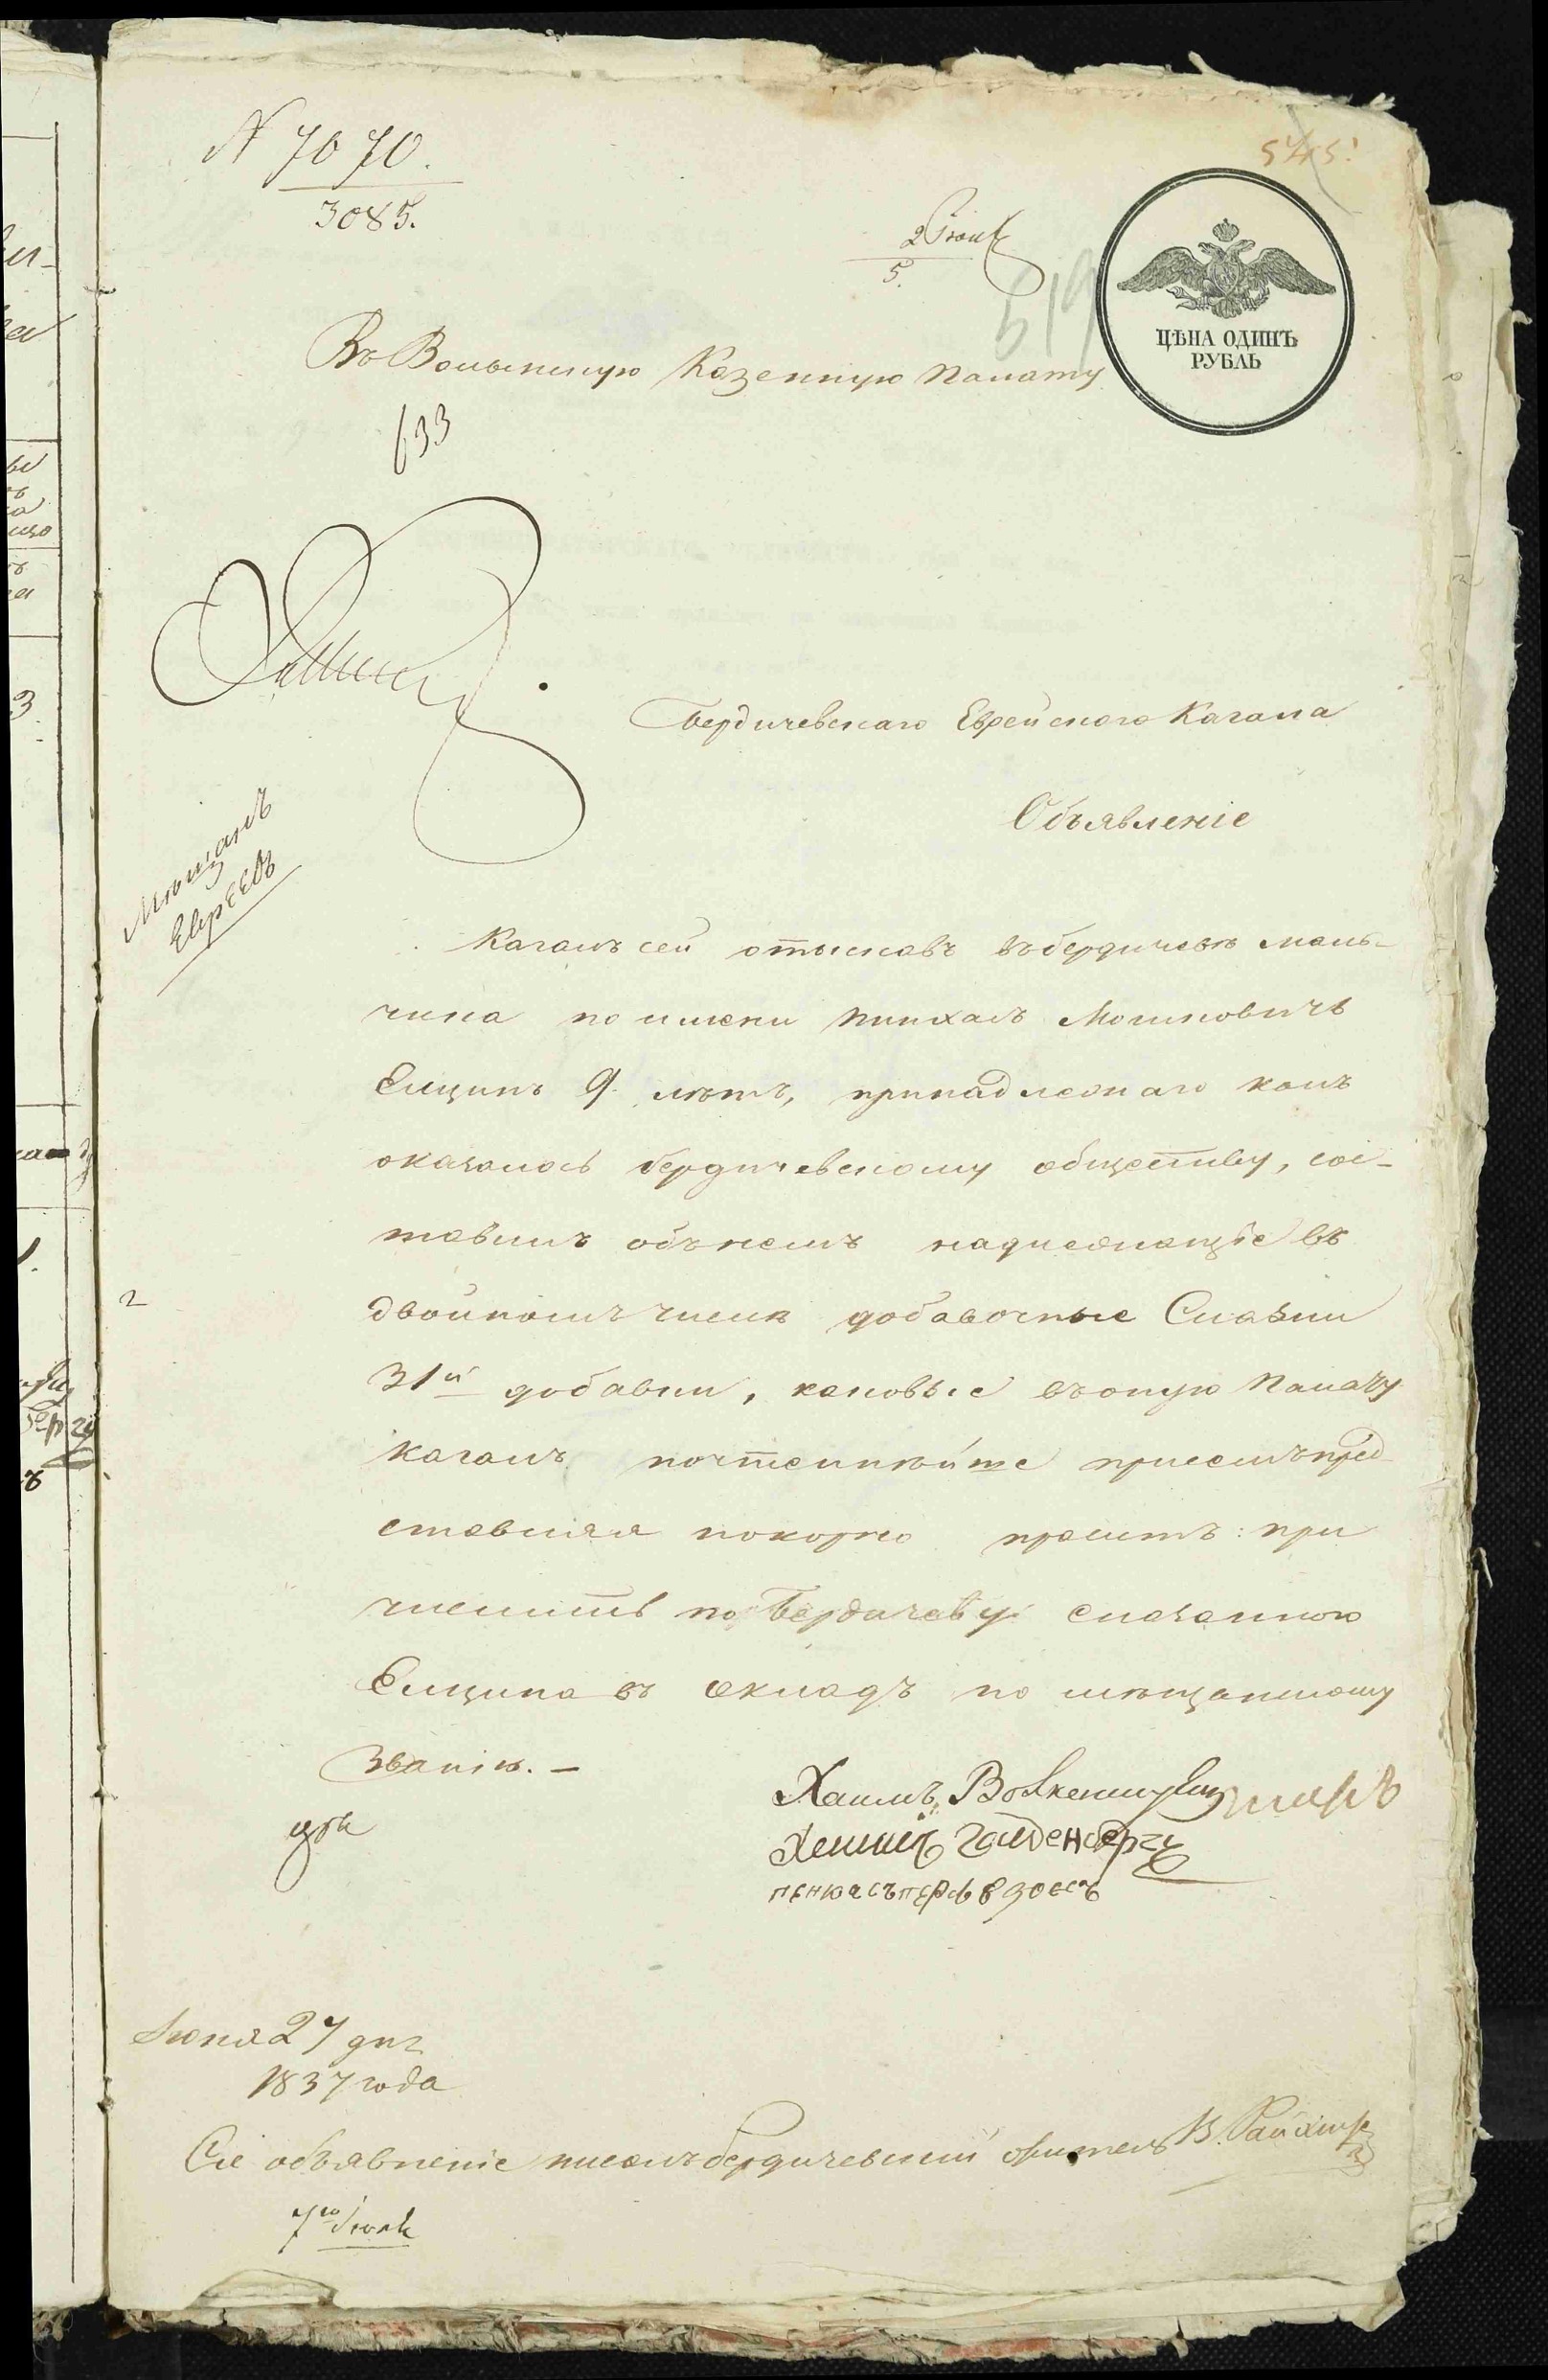 N 7070.
3085.
545
2 Іюля
5.
619
ЦѢНА ОДИНЪ
РУБЛЬ
Въ Волынскую Казенную Палату
633
Бердичевскаго Еврейского Кагала
Объявленіе
Мѣщанъ
Евреевъ
Кагалъ сей отыскавъ въ бердичевѣ маль-
чика по имени Пинхасъ Мошковичъ
Елцинъ 9 лѣтъ, принадлежаго какъ
оказалось бердичевскому обществу, сос-
тавилъ объ немъ надлежащіе въ
двойномъ числѣ добавочные Сказки
31й добавки, каковые въ оную Палату
Кагалъ почтеннѣйше присемъ пред
ставляя покорно проситъ: при
числить по Бердичеву сказанного
Елцина въ окладъ по мѣщанскому
Званію. —
Хаимъ
Гольденбергъ
Июня 27 дня
1837 года
Сіе объявленіе писалъ бердичевскій житель В.
7го Іюля